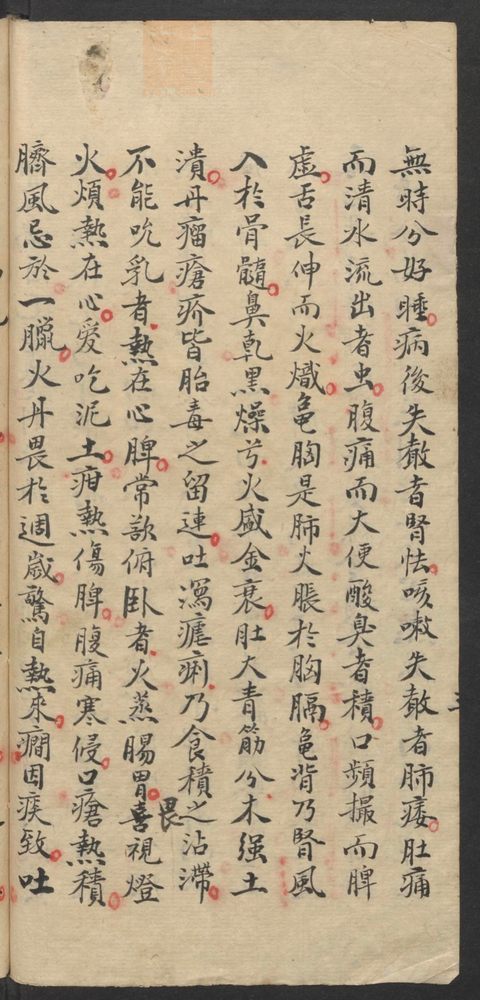 無時分好睡病後失敵者腎怯咳嗽失敵者肺痿肚痛
而清水流出者虫腹痛而大便酸臭者積口頻撮而脾
虛舌長伸而火熾龜胸是肺火脹於胸膈龜背乃腎風
入於骨髓鼻乾黑燥兮火盛金衰肚大青筋分木强土
潰丹瘤瘡疥皆胎毒之留連吐瀉瘧痢乃食積之沾滯
不能吮乳者熱在心脾常欲俯卧者火蒸腸胃喜視燈
畏
火煩熱在心愛吃泥土疳熱傷脾腹痛寒侵口瘡熱積
臍風忌於一臘火丹畏於週歲驚自熱來癇因痰致吐